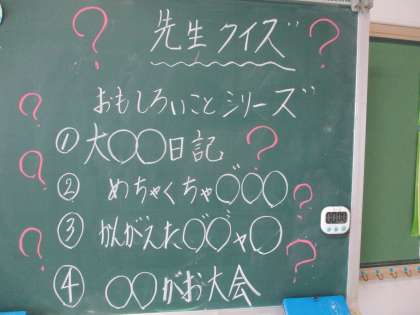 先生クイズ
おもしろいことシリーズ
① 大〇〇日記
② めちゃくちゃ〇゛〇〇
③ かんがえた〇゛〇゛ャ〇
④ 〇〇がお大会